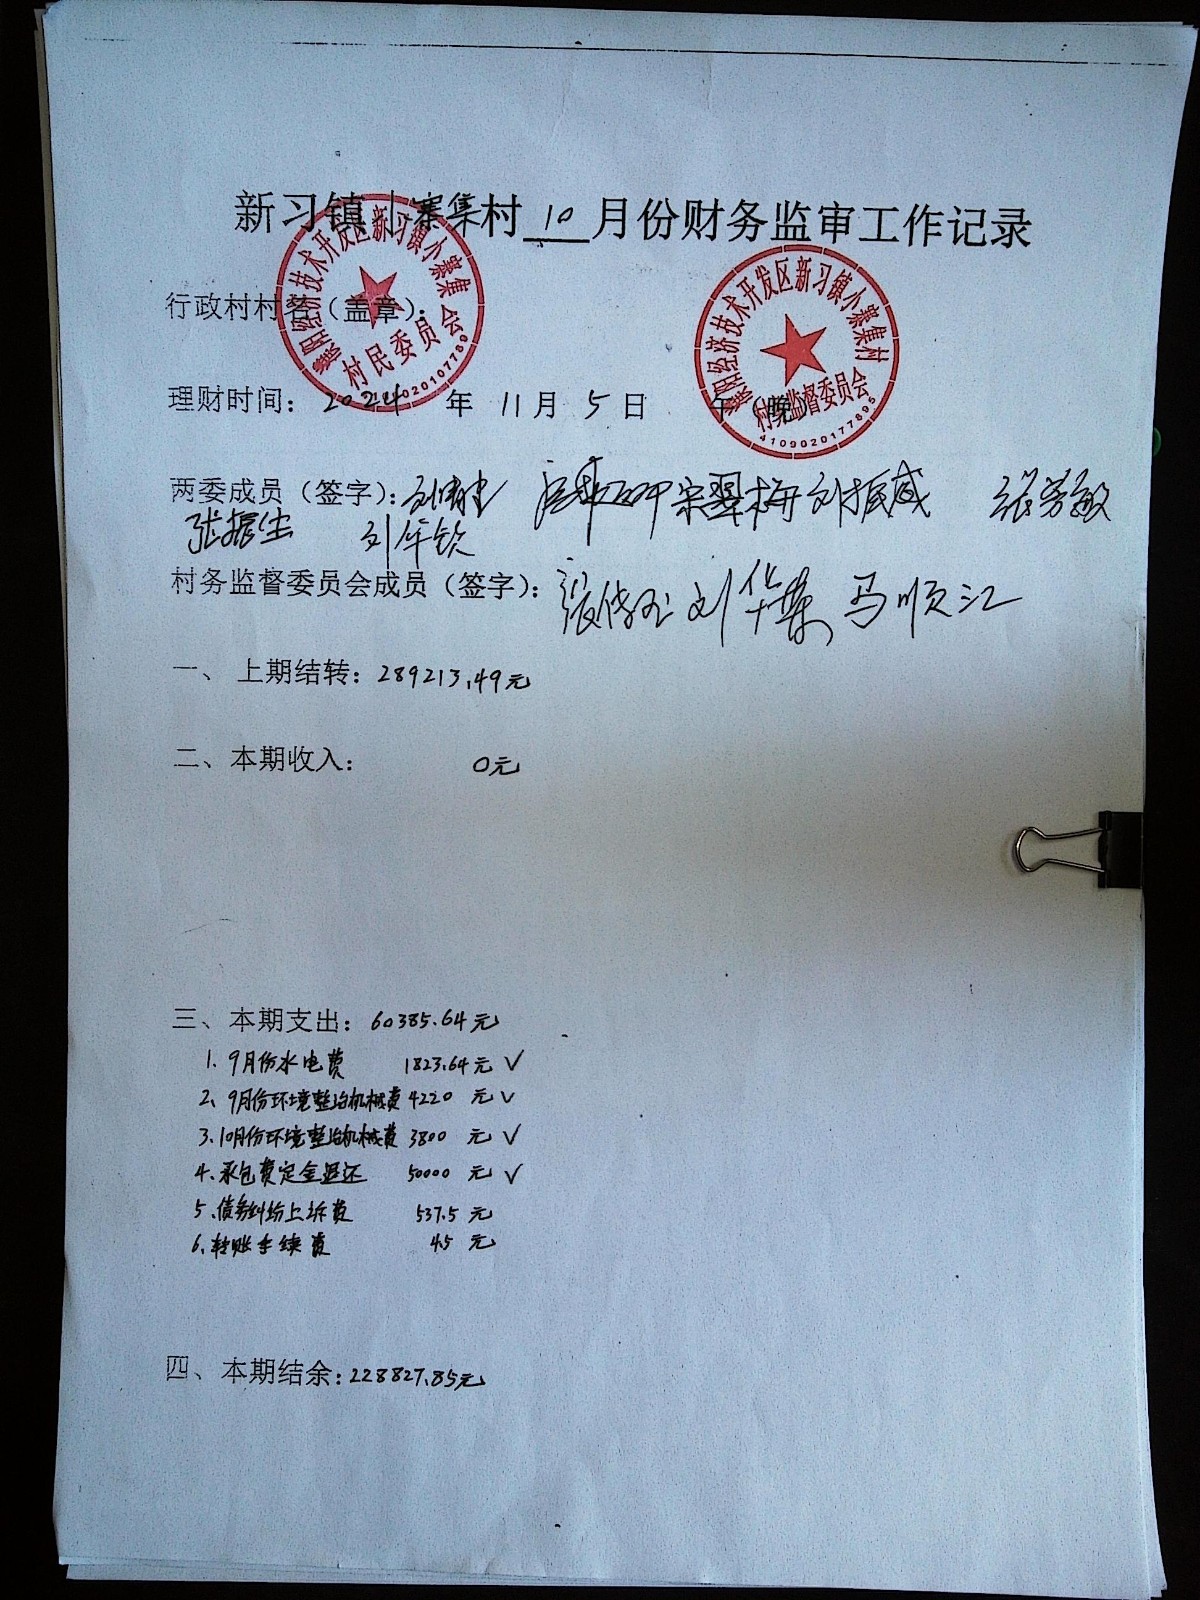 新习镇小寨集村 10 月份财务监审工作记录
行政村村名（盖章）：
濮阳经济技术开发区新习镇小寨集
村民委员会
4109020107789
濮阳经济技术开发区新习镇小寨集村
村务监督委员会
4109020177895
理财时间：2024 年 11月 5 日 午（晚）
两委成员（签字）： 宋翠梅 刘振威 张芳敏
张振生 刘军钦
村务监督委员会成员（签字）： 刘华栋 马顺江
一、 上期结转：289213.49元
二、本期收入： 0元
三、本期支出：60385.64元
1. 9月份水电费 1823.64元 √
2、9月份环境整治机械费 4220 元 √
3、10月份环境整治机械费 3800 元 √
4、承包费定金退还 50000 元 √
5、债务纠纷上诉费 537.5 元
6、转账手续费 4.5 元
四、本期结余：228827.85元